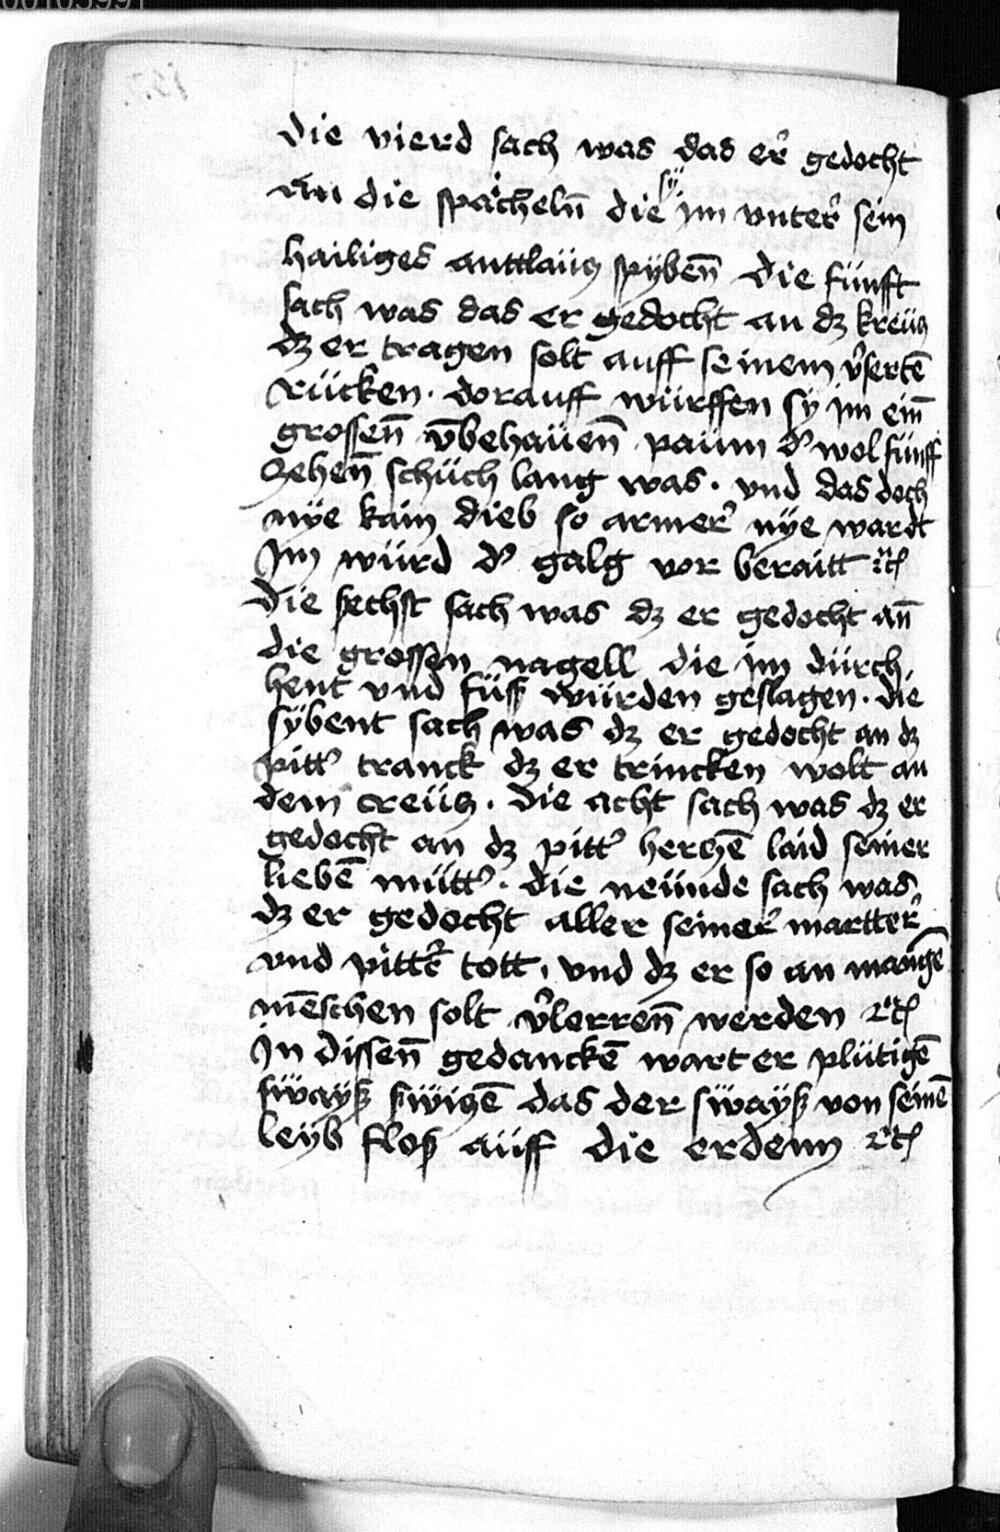 die vierd sach was das er gedocht
An die spächeln̄ die sÿ jm vnter sein
hailiges anttlaüz spÿben̄ die fünfft
sach was das er gedocht an dz kreüz
dz er tragen solt auff seinem v̉sertē
rücken . dorauff würffen sÿ jm ein̄
grossen̄ v̄behaüen̄ paum d᾽ wol fünff
zehen̄ schüch lang was . vnd das doch
nÿe kain dieb so armer nÿe wardt
Im würd d᾽ galg vor beraitt ꝛc̄
Die sechst sach was dz er gedocht an̄
die grossen nagell die jm dürch
hent vnd füß würden geslagen . die
sÿbent sach was dz er gedocht an dz
pitt᾽ tranck dz er trincken wolt an
dem creüz . die acht sach was dz er
gedocht an dz pitt᾽ herczē laid seiner
liebē mütt᾽ . die neünde sach was
dz er gedocht aller seiner martter
vnd pittē tott . vnd dz er so an mangē
mēschen solt v̉lerren̄ werden ꝛc̄
In dissen̄ gedanckē wart er plütigē
swaÿß swizē das der swaÿß von seinē
leÿb floß aüff die erdenn ꝛc̄